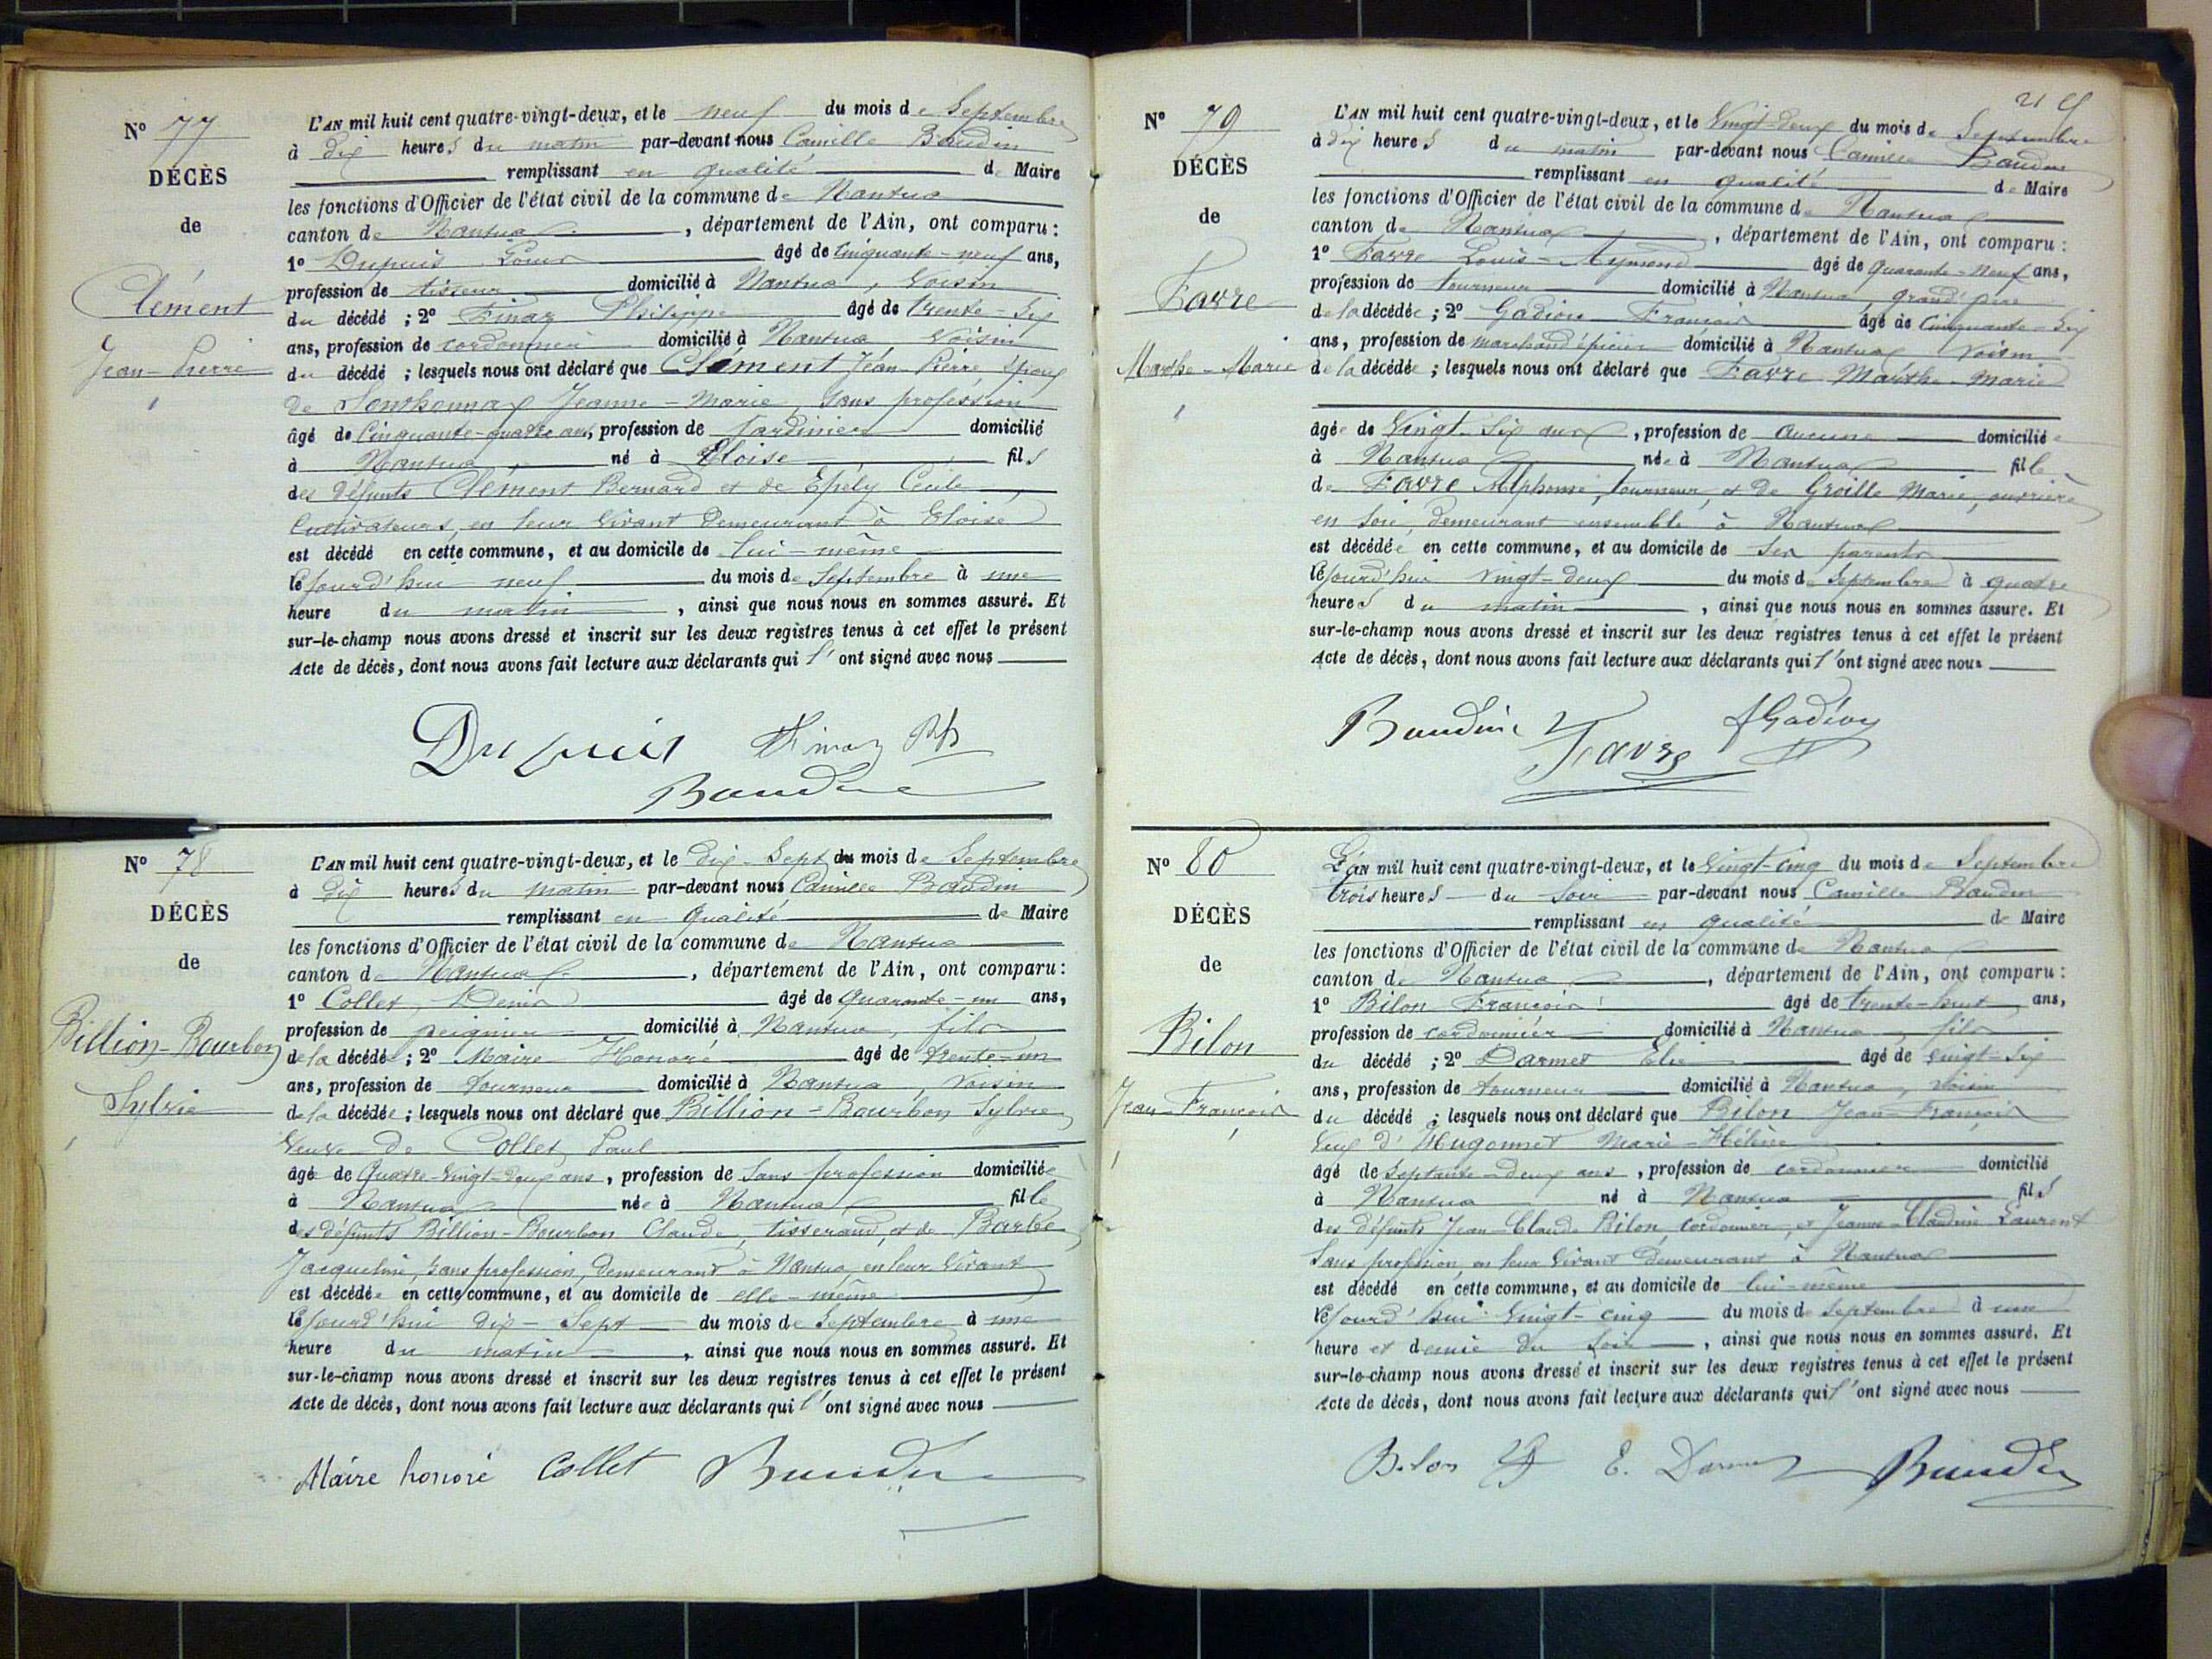 N° 77
DÉCÈS
de
Clément
Jean-Pierre
L'AN mil huit cent quatre-vingt-deux, et le neuf du mois de Septembre
à dix heures du matin par-devant nous Camille Baudin
remplissant en qualité de Maire
les fonctions d'Officier de l'état civil de la commune de Nantua
canton de Nantua, département de l'Ain, ont comparu :
1° Dupuis Louis âgé de Cinquante-neuf ans,
profession de tisseur domicilié à Nantua, Voisin
du décédé ; 2° Finaz Philippe âgé de trente-six
ans, profession de cordonnier domicilié à Nantua Voisin
du décédé ; lesquels nous ont déclaré que Clément Jean-Pierre époux
de Jeanne-Marie, sans profession
âgé de Cinquante-quatre ans, profession de Jardinier domicilié
à Nantua né à Eloise fils
des défunts Clément Bernard et de Cécile
Cultivateurs, en leur vivant demeurant à Eloise
est décédé en cette commune, et au domicile de lui-même
Cejourd'hui neuf du mois de Septembre à une
heure du matin, ainsi que nous nous en sommes assuré. Et
sur-le-champ nous avons dressé et inscrit sur les deux registres tenus à cet effet le présent
Acte de décès, dont nous avons fait lecture aux déclarants qui l'ont signé avec nous
Dupuis Finaz Ph
Baudin
N° 78
DÉCÈS
de
Billion-Bourbon
Sylvie
L'AN mil huit cent quatre-vingt-deux, et le dix-Sept du mois de Septembre
à dix heures du matin par-devant nous Camille Baudin
remplissant en qualité de Maire
les fonctions d'Officier de l'état civil de la commune de Nantua
canton de Nantua, département de l'Ain, ont comparu :
1° Collet, Denis âgé de quarante-un ans,
profession de peignier domicilié à Nantua, fils
de la décédée ; 2° Maire Honoré âgé de trente-un
ans, profession de tourneur domicilié à Nantua, Voisin
de la décédée ; lesquels nous ont déclaré que Billion-Bourbon Sylvie
Veuve de Collet, Paul
âgé de Quatre-Vingt-Deux ans, profession de Sans profession domiciliée
à Nantua née à Nantua fille
des défunts Billion-Bourbon Claude, tisserand, et de Barbe
Jacqueline, sans profession, demeurant à Nantua en leur Vivant
est décédée en cette commune, et au domicile de elle-même
Cejourd'hui dix-Sept du mois de Septembre à une
heure du matin, ainsi que nous nous en sommes assuré. Et
sur-le-champ nous avons dressé et inscrit sur les deux registres tenus à cet effet le présent
Acte de décès, dont nous avons fait lecture aux déclarants qui l'ont signé avec nous
Maire honoré Collet Baudin
N° 79
DÉCÈS
de
Favre
Marthe-Marie
L'AN mil huit cent quatre-vingt-deux, et le Vingt-Deux du mois de Septembre
à dix heures du matin par-devant nous Camille Baudin
remplissant en qualité de Maire
les fonctions d'Officier de l'état civil de la commune de Nantua
canton de Nantua, département de l'Ain, ont comparu :
1° Favre Louis-Aymond âgé de quarante-neuf ans,
profession de tourneur domicilié à Nantua, grand'père
de la décédée ; 2° François âgé de Cinquante-Six
ans, profession de marchand épicier domicilié à Nantua Voisin
de la décédée ; lesquels nous ont déclaré que Favre Marthe-Marie
âgée de Vingt-Six, profession de aucune domiciliée
à Nantua née à Nantua fille
de Favre Alphonse, tourneur, et de Groille Marie, ouvrière
en soie, demeurant ensemble à Nantua
est décédée en cette commune, et au domicile de ses parents
Cejourd'hui Vingt-deux du mois de Septembre à quatre
heures du matin, ainsi que nous nous en sommes assuré. Et
sur-le-champ nous avons dressé et inscrit sur les deux registres tenus à cet effet le présent
Acte de décès, dont nous avons fait lecture aux déclarants qui l'ont signé avec nous
Baudin Favre
N° 80
DÉCÈS
de
Bilon
Jean-François
L'AN mil huit cent quatre-vingt-deux, et le Vingt-Cinq du mois de Septembre
trois heures du soir par-devant nous Camille Baudin
remplissant en qualité de Maire
les fonctions d'Officier de l'état civil de la commune de Nantua
canton de Nantua, département de l'Ain, ont comparu :
1° Bilon François âgé de trente-huit ans,
profession de cordonnier domicilié à Nantua, fils
du décédé ; 2° Darmet Elie âgé de Vingt-Six
ans, profession de tourneur domicilié à Nantua, Voisin
du décédé ; lesquels nous ont déclaré que Bilon Jean-François
Veuf d'Hugonnet Marie-Hélène
âgé de Septante-deux ans, profession de cordonnier domicilié
à Nantua né à Nantua fils
des défunts Jean-Claude Bilon, cordonnier, et Jeanne-Claudine Laurent
Sans profession, en leur Vivant demeurant à Nantua
est décédé en cette commune, et au domicile de lui-même
Cejourd'hui Vingt-cinq du mois de Septembre à une
heure et demie du soir, ainsi que nous nous en sommes assuré. Et
sur-le-champ nous avons dressé et inscrit sur les deux registres tenus à cet effet le présent
Acte de décès, dont nous avons fait lecture aux déclarants qui l'ont signé avec nous
Bilon E. Darmet Baudin